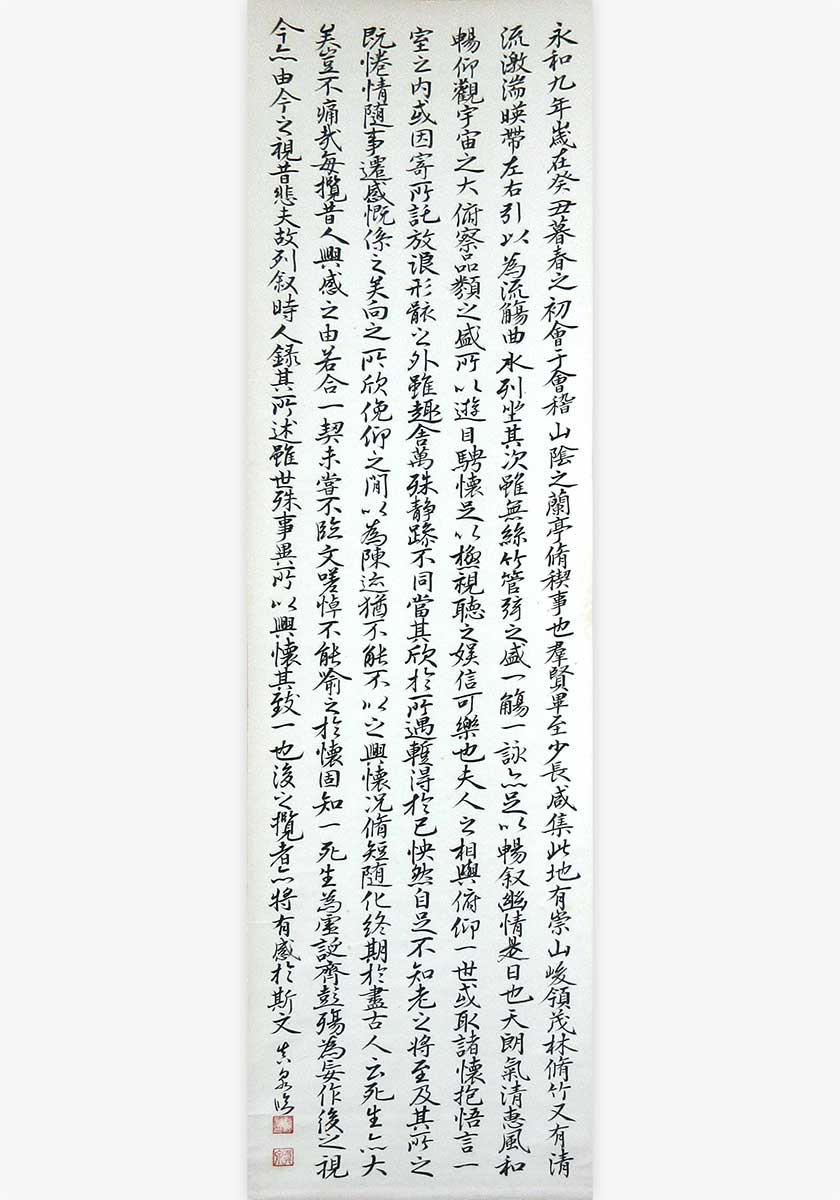 永和九年歲在癸丑暮春之初會于會稽山陰之蘭亭脩稧事也羣賢畢至少長咸集此地有崇山峻領茂林脩竹又有清
流激湍暎帶左右引以為流觴曲水列坐其次雖無絲竹管弦之盛一觴一詠亦足以暢叙幽情是日也天朗氣清惠風和
暢仰觀宇宙之大俯察品類之盛所以遊目騁懷足以極視聽之娛信可樂也夫人之相與俯仰一世或取諸懷抱悟言一
室之內或因寄所託放浪形骸之外雖趣舍萬殊静躁不同當其欣於所遇蹔得於己怏然自足不知老之將至及其所之
既惓情随事遷感慨係之矣向之所欣俛仰之閒以為陳迹猶不能不以之興懷况脩短随化終期於盡古人云死生亦大
矣豈不痛哉每攬昔人興感之由若合一契未嘗不臨文嗟悼不能喻之於懷固知一死生為虛誕齊彭殤為妄作後之視
今亦由今之視昔悲夫故列叙時人録其所述雖世殊事異所以興懷其致一也後之攬者亦將有感於斯文 泉臨